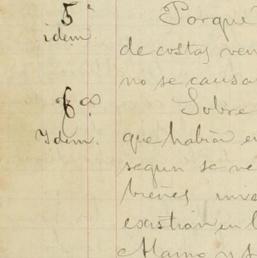 5ª
idem
Porqué
de costas ven
no se causa
6ª
Ydem.
Sobre
que habia e
segun se ve
bienes inv
ecsistian en l
Alamo y s